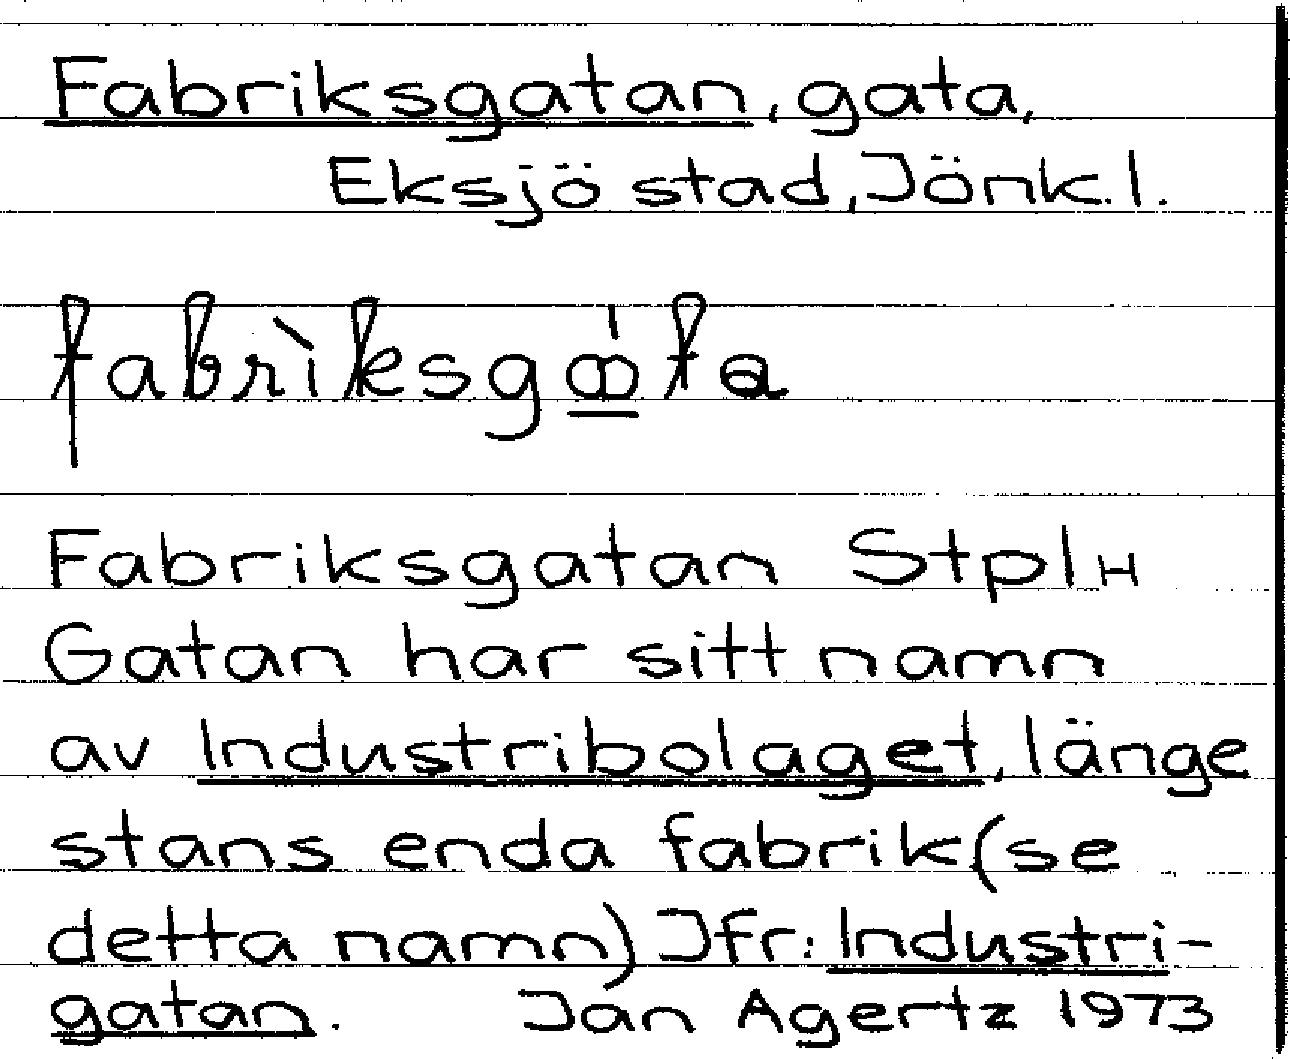 Fabriksgatan, gata,
Eksjö stad, Jönk. l.
fabrìksgꝏ̲́ta
Fabriksgatan Stpl H
Gatan har sitt namn
av Industribolaget, länge
stans enda fabrik (se
detta namn) Jfr: Industri-
gatan. Jan Agertz 1973